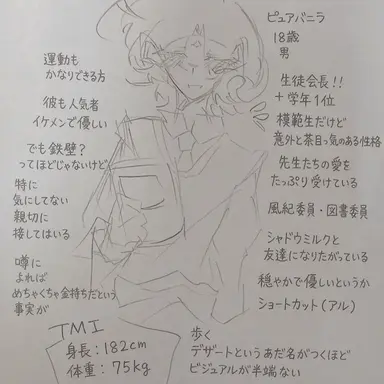 ピュアバニラ
18歳
男
生徒会長!!
+学年1位
模範生だけど
意外と茶目っ気のある性格
先生たちの愛を
たっぷり受けている
風紀委員・図書委員
シャドウミルクと
友達になりたがっている
穏やかで優しいというか
ショートカット(アル)
運動も
かなりできる方
彼も人気者
イケメンで優しい
でも鉄壁?
ってほどじゃないけど
特に
気にしてない
親切に
接してはいる
噂に
よれば
めちゃくちゃ金持ちだという
事実が
TMI
身長:182cm
体重:75kg
歩く
デザートというあだ名がつくほど
ビジュアルが半端ない